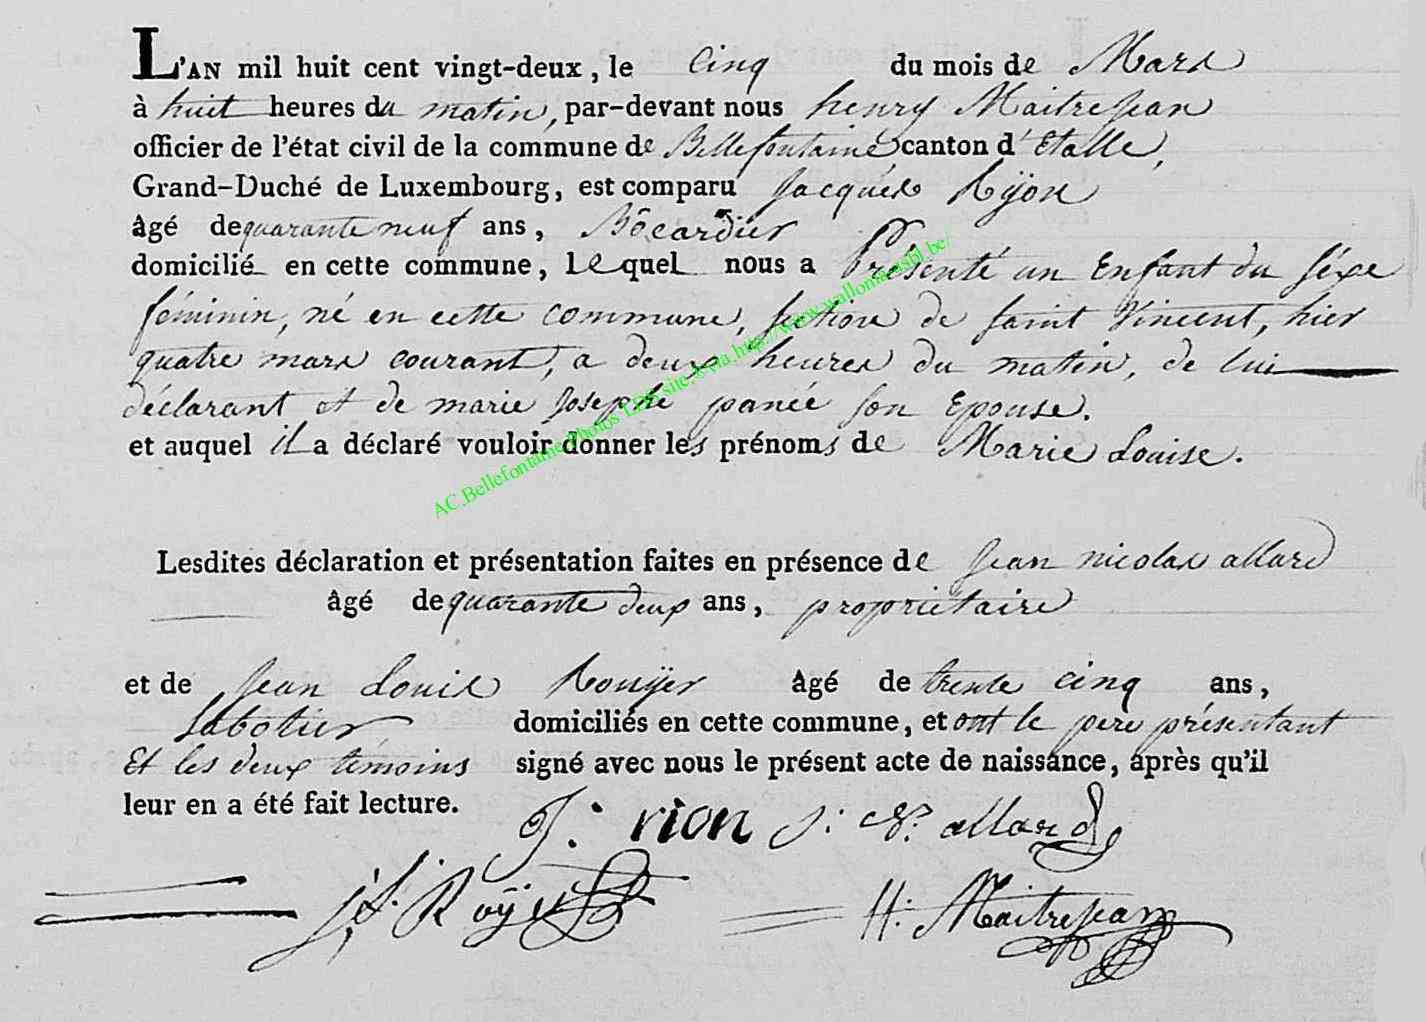 L'AN mil huit cent vingt-deux, le cinq du mois de Mars
à huit heures du matin, par-devant nous henry Maitrejean
officier de l'état civil de la commune de Bellefontaine canton d'Etalle,
Grand-Duché de Luxembourg, est comparu Jacques Rÿon
âgé de quarante neuf ans, Bôcardier
domicilié en cette commune, lequel nous a Présenté un Enfant du séxe
féminin, né en cette commune, section de saint Vincent, hier
quatre mars courant, a deux heures du matin, de lui
déclarant et de marie Josephe panée son Epouse.
et auquel il a déclaré vouloir donner les prénoms de Marie Louise.
AC.Bellefontaine Photos LDS site via http://www.wallonia.asbl.be/
Lesdites déclaration et présentation faites en présence de Jean nicolas allard
âgé de quarante deux ans, propriétaire
et de Jean Louis Rouÿer âgé de trente cinq ans,
sabotier domiciliés en cette commune, et ont le pere présentant
Et les deux témoins signé avec nous le présent acte de naissance, après qu'il
leur en a été fait lecture.
J. rion J: N. allard
J L. Roÿer H: Maitrejean